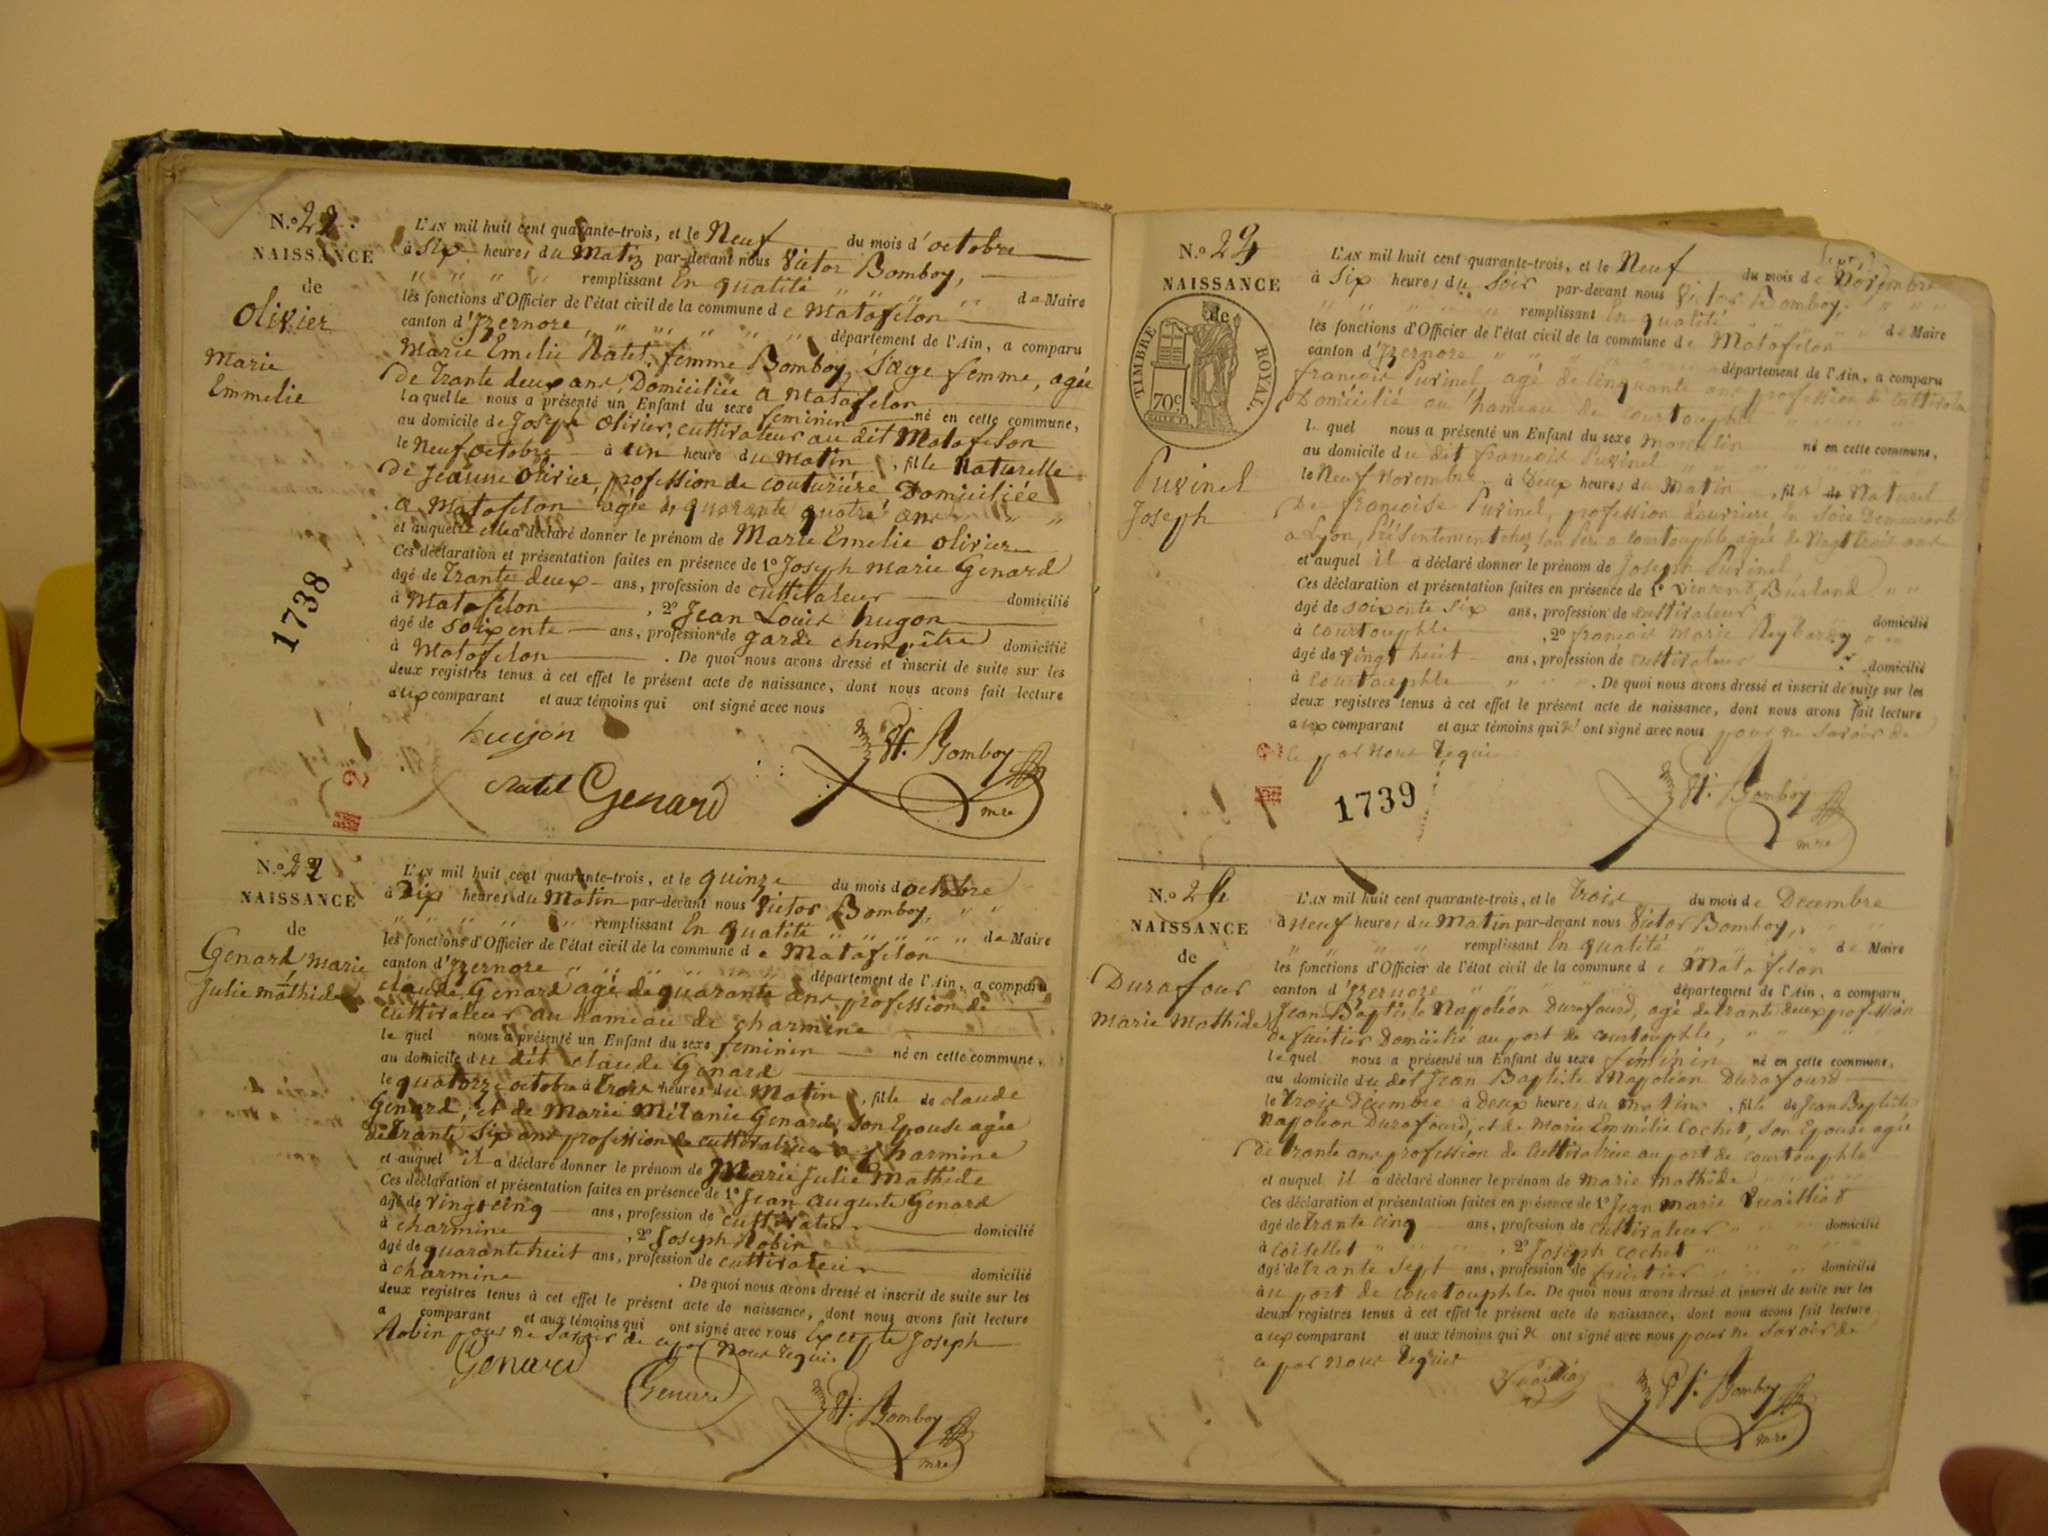 N.º 22
NAISSANCE
de
Olivier
Marie
Emmelie
L'AN mil huit cent quarante-trois, et le Neuf du mois d'octobre
à Six heures du Matin par-devant nous Victor Bomboy,
remplissant En qualité de Maire
les fonctions d'Officier de l'état civil de la commune de Matafelon
canton d'Izernore département de l'Ain, a comparu
Marie Emelie Ratel, femme Bomboy, Sage femme, agée
De trante deux ans, Domiciliée a Matafelon
laquelle nous a présenté un Enfant du sexe feminin né en cette commune,
au domicile de Joseph Olivier, cultivateur au dit Matafelon
le Neuf octobre à un heure du Matin, fille Naturelle
De Jeanne Olivier, profession de couturière Domiciliée
a Matafelon agée de quarante quatre ans
et auquelle elle a déclaré donner le prénom de Marie Emelie Olivier
Ces déclaration et présentation faites en présence de 1º Joseph Marie Genard
âgé de trante deux ans, profession de cultivateur domicilié
à Matafelon, 2º Jean Louis hugon
âgé de soixente ans, profession de garde champêtre domicilié
à Matafelon. De quoi nous avons dressé et inscrit de suite sur les
deux registres tenus à cet effet le présent acte de naissance, dont nous avons fait lecture
aux comparant et aux témoins qui ont signé avec nous
1738
hugon
Ratel Genard
Vt. Bomboy
mre
N.º
NAISSANCE
de
Genard Marie
Julie Mathide
L'AN mil huit cent quarante-trois, et le quinze du mois d octobre
à Dix heures du Matin par-devant nous Victor Bomboy,
remplissant En qualité de Maire
les fonctions d'Officier de l'état civil de la commune de Matafelon
canton d'Izernore département de l'Ain, a comparu
claude Genard agé de quarante ans profession de
cultivateur au hameau de charmine
le quel nous a présenté un Enfant du sexe feminin né en cette commune,
au domicile du dit claude Genard
le quatorze octobre à trois heures du Matin, fille de claude
Genard, et de Marie Mélanie Genard, son Epouse agée
de trante six ans profession de cultivatrice a charmine
et auquel il a déclaré donner le prénom de Marie Julie Mathide
Ces déclaration et présentation faites en présence de 1º Jean auguste Genard
âgé de vingt cinq ans, profession de cultivateur domicilié
à charmine, 2º Joseph Robin
âgé de quarante huit ans, profession de cultivateur domicilié
à charmine. De quoi nous avons dressé et inscrit de suite sur les
deux registres tenus à cet effet le présent acte de naissance, dont nous avons fait lecture
a comparant et aux témoins qui ont signé avec nous Excepte Joseph
Robin pour ne savoir de ce par Nous requis
Genard
Genard
Vt. Bomboy
mre
N.º
NAISSANCE
de
TIMBRE ROYAL.
70c
Puvinel
Joseph
L'AN mil huit cent quarante-trois, et le Neuf du mois de Novembre
à Six heures du Soir par-devant nous Victor Bomboy,
remplissant En qualité de Maire
les fonctions d'Officier de l'état civil de la commune de Matafelon
canton d'Izernore département de l'Ain, a comparu
françois Puvinel, agé de cinquante ans profession de cultivateur
Domicilié au hameau de courtouphle
le quel nous a présenté un Enfant du sexe masculin né en cette commune,
au domicile du dit françois Puvinel
le Neuf Novembre à Deux heures du Matin, fils Naturel
De françoise Puvinel, profession d'ouvriere en soie Demeurante
a Lyon, Présentement chez son Père a courtouphle, agée de vingt trois ans
et auquel il a déclaré donner le prénom de Joseph Puvinel
Ces déclaration et présentation faites en présence de 1º Vincent Burland
âgé de soixente six ans, profession de cultivateur domicilié
à courtouphle, 2º françois Marie
âgé de vingt huit ans, profession de cultivateur domicilié
à courtouphle. De quoi nous avons dressé et inscrit de suite sur les
deux registres tenus à cet effet le présent acte de naissance, dont nous avons fait lecture
aux comparant et aux témoins qui ont signé avec nous pour ne savoir de
ce par Nous requis
1739
Vt. Bomboy
mre
N.º
NAISSANCE
de
Durafour
Marie Mathide
L'AN mil huit cent quarante-trois, et le trois du mois de Decembre
à Neuf heures du Matin par-devant nous Victor Bomboy,
remplissant En qualité de Maire
les fonctions d'Officier de l'état civil de la commune de Matafelon
canton d'Izernore département de l'Ain, a comparu
Jean Baptiste Napoléon Durafourd, agé de trante deux profession
de fruitier Domicilié au port de courtouphle,
le quel nous a présenté un Enfant du sexe feminin né en cette commune,
au domicile du dit Jean Baptiste Napoléon Durafourd
le trois Decembre à Deux heures du matin, fille de Jean Baptiste
Napoléon Durafourd, et de Marie Emmélie Cochet, son Epouse agée
De trante ans profession de cultivatrice au port de courtouphle
et auquel il a déclaré donner le prénom de Marie Mathide
Ces déclaration et présentation faites en présence de 1º Jean Marie
âgé de trante cinq ans, profession de cultivateur domicilié
à Coisellet, 2º Joseph Cochet
âgé de trante sept ans, profession de fruitier domicilié
à u port de courtouphle. De quoi nous avons dressé et inscrit de suite sur les
deux registres tenus à cet effet le présent acte de naissance, dont nous avons fait lecture
aux comparant et aux témoins qui ont signé avec nous pour ne savoir de
ce par Nous requis
Vt. Bomboy
mre